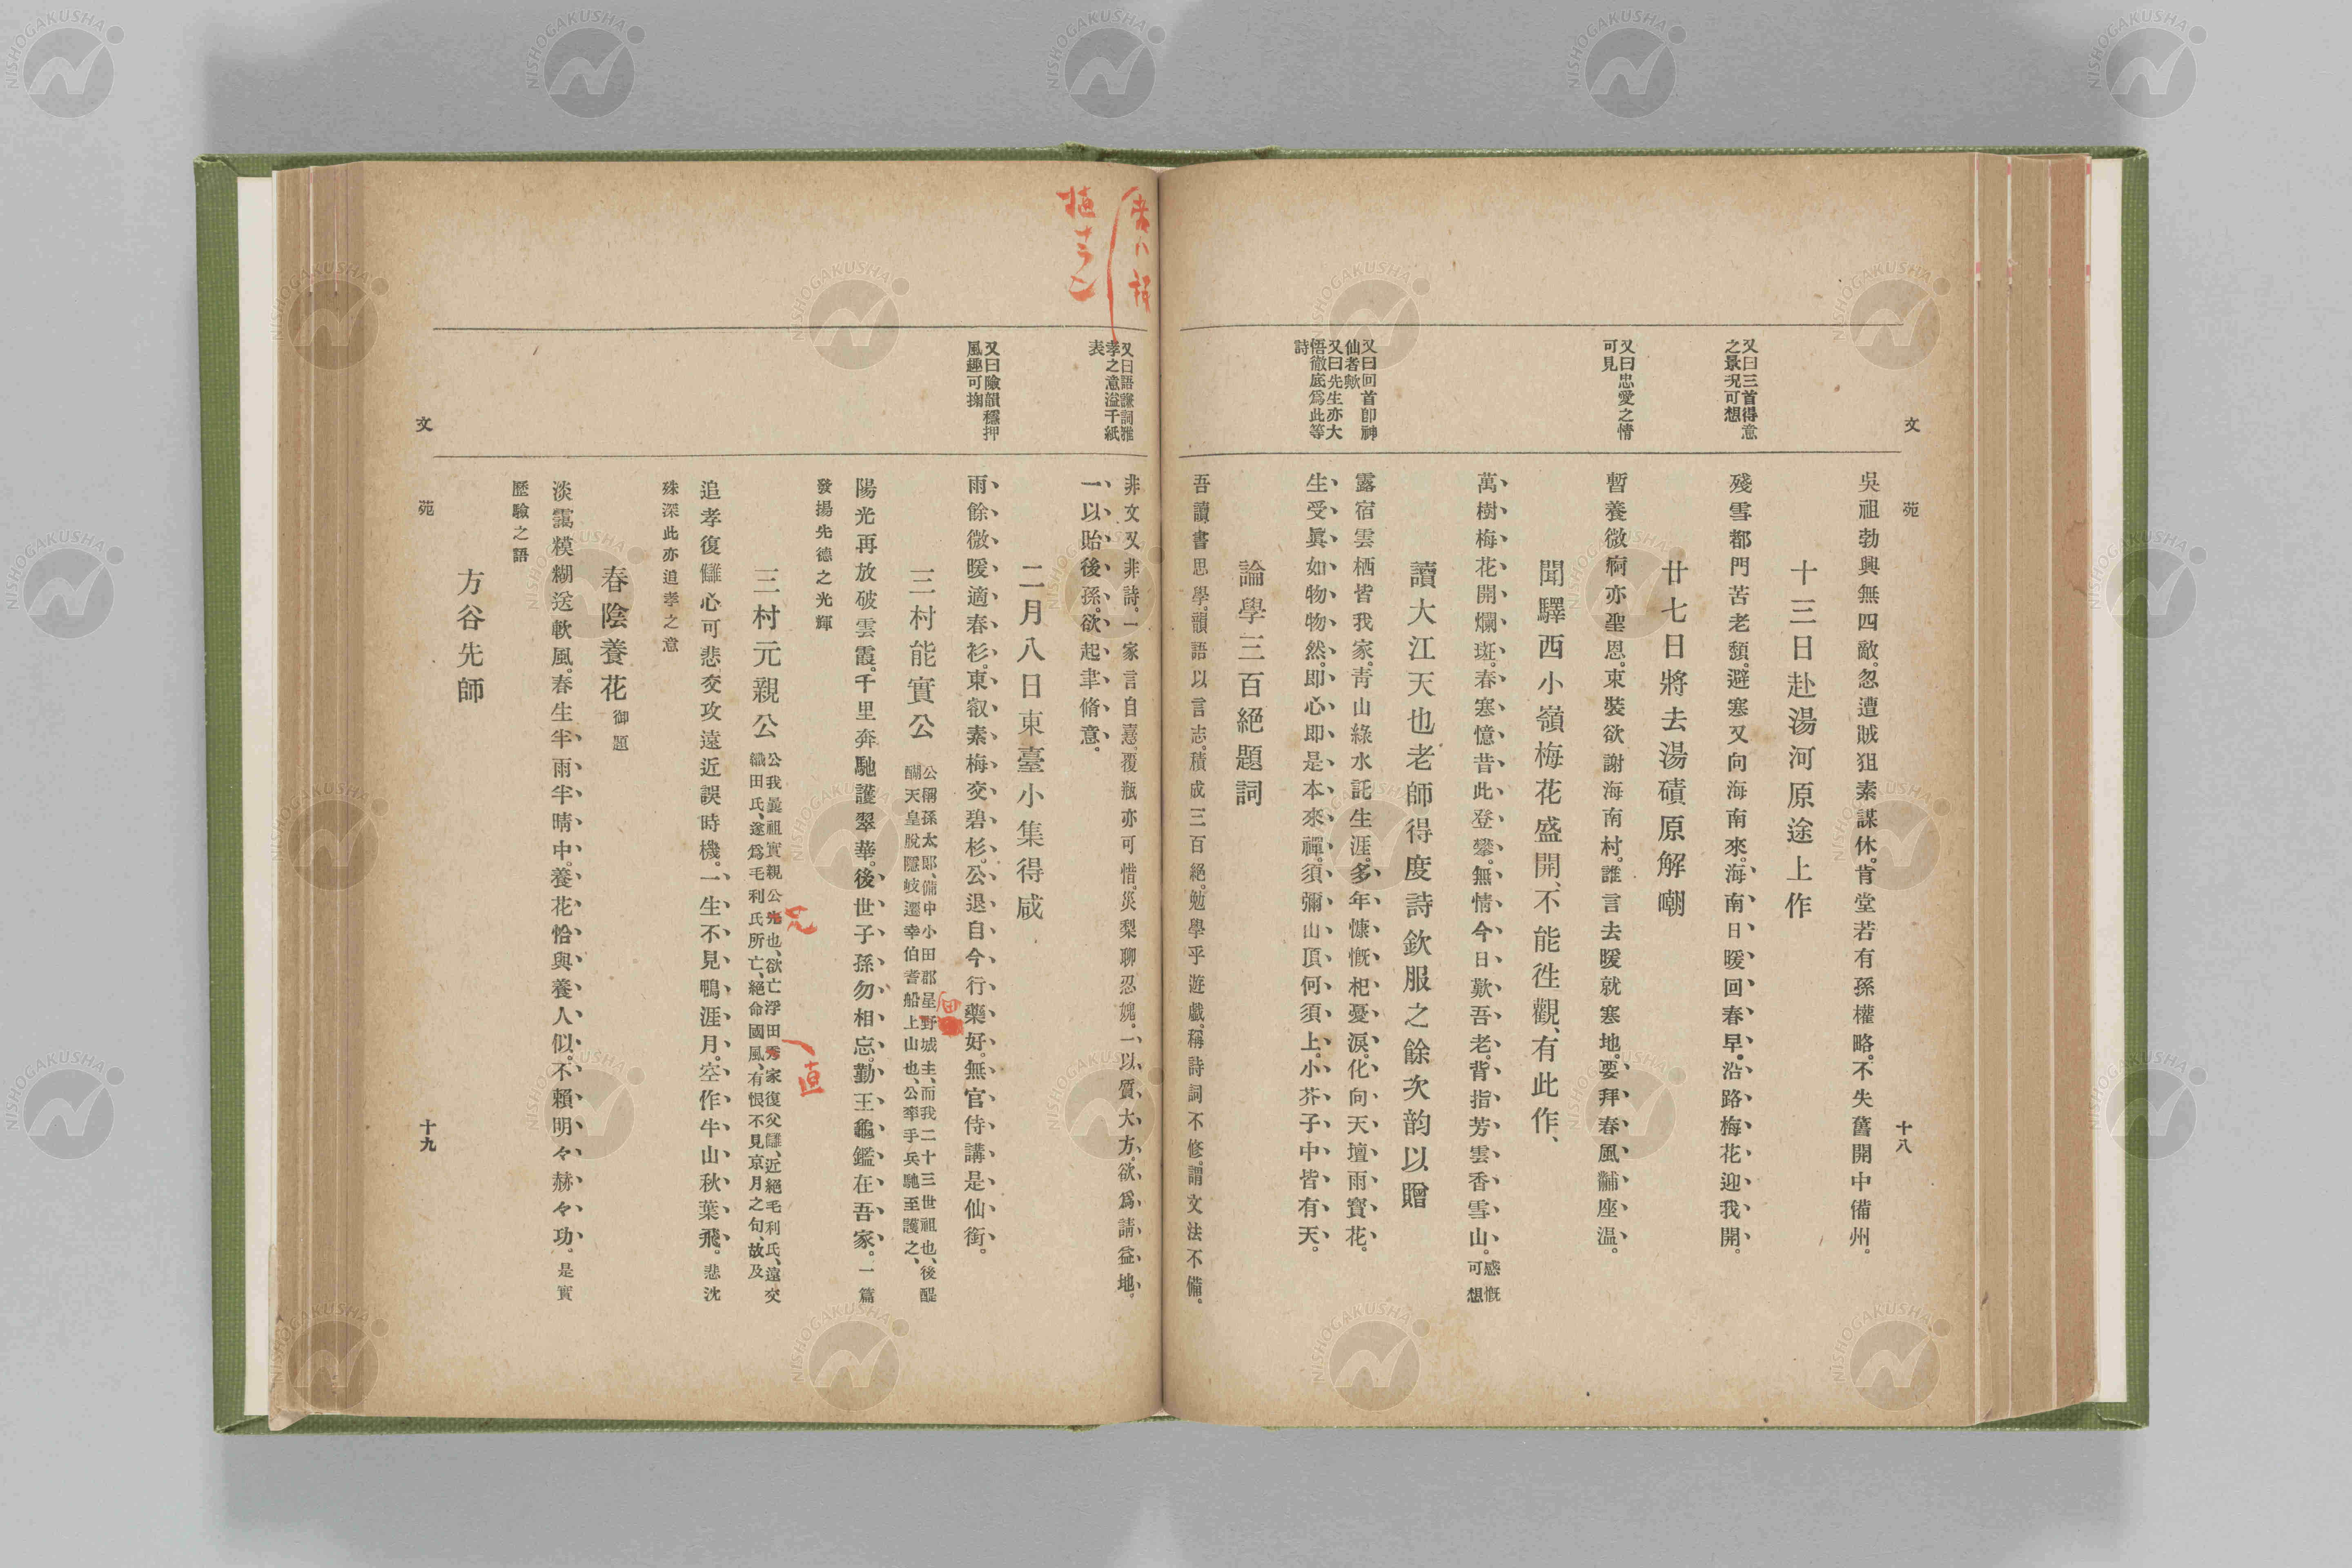 文苑
十八
吳祖勃興無四敵。忽遭賊狙素謀休。肯堂若有孫權略。不失舊開中備州。
十三日赴湯河原途上作
又曰三首得意
之景况可想
殘雪都門苦老頽。避塞又向海南來。海南日暖回春早。沿路梅花迎我開。
廿七日將去湯磧原解嘲
又曰忠愛之情
可見
暫養微痾亦聖恩。束裝欲謝海南村。誰言去暖就寒地。要拜春風黼座溫。
聞驛西小嶺梅花盛開、不能徃觀、有此作、
萬樹梅花開爛斑。春寒憶昔此登攀。無情今日歎吾老。背指芳雲香雪山。感慨
可想
讀大江天也老師得度詩欽服之餘次韵以贈
又曰回首卽神
仙者歟
又曰先生亦大
悟徹底爲此等
詩
露宿雲栖皆我家。靑山綠水託生涯。多年慷慨杞憂淚。化向天壇雨寶花。
生受眞如物物然。即心即是本來禪。須彌山頂何須上。小芥子中皆有天。
論學三百絕題詞
吾讀書思學。韻語以言志。積成三百絕。勉學乎遊戲。稱詩詞不修。謂文法不備。
又曰語謙詞雅
孝之意溢于紙
表
非文又非詩。一家言自憙。覆瓶亦可惜。災梨聊忍媿。一以質大方。欲爲請益地。
一以貽後孫。欲起聿脩意。
二月八日東臺小集得咸
又曰險韻穩押
風趣可掬
雨餘微暖適春衫。東叡素梅交碧杉。公退自今行藥好。無官侍講是仙銜。
三村能實公
公稱孫太郎、備中小田郡星野城主、而我二十三世祖也、後醍
醐天皇脫隱岐遷幸伯耆船上山也、公率手兵馳至護之、
陽光再放破雲霞。千里奔馳護翠華。後世子孫勿相忘。勤王龜鑑在吾家。一篇
發揚先德之光輝
三村元親公
公我曩祖實親公先也、欲亡浮田秀家復父讎、近絕毛利氏、遠交
織田氏、遂爲毛利氏所亡、絕命國風、有恨不見京月之句、故及
兄
直
追孝復讎心可悲。交攻遠近誤時機。一生不見鴨涯月。空作牛山秋葉飛。悲沈
殊深此亦追孝之意
春陰養花御題
淡靄糢糊送軟風。春生半雨半晴中。養花恰與養人似。不賴明々赫々功。是實
歷驗之語
方谷先師
文苑
十九